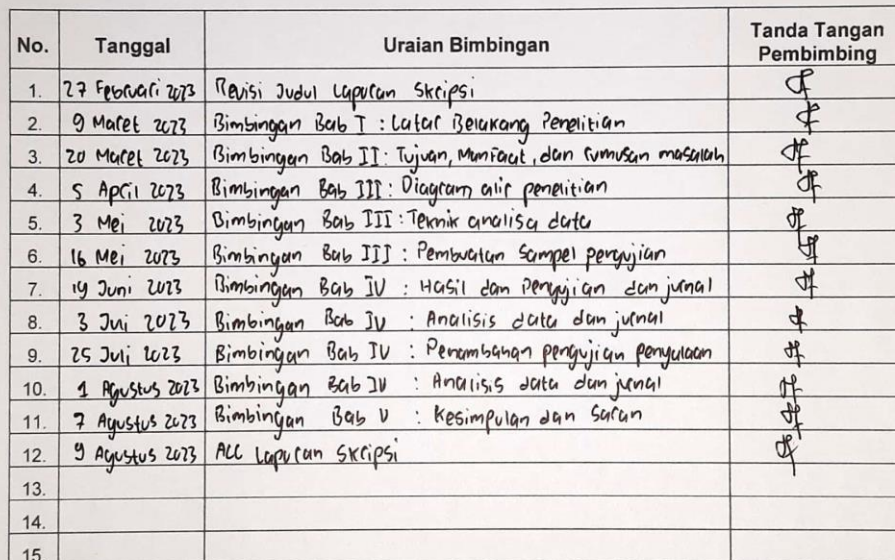 No. Tanggal Uraian Bimbingan Tanda Tangan Pembimbing
1. 27 Februari 2023 Revisi Judul Laporan Skripsi
2. 9 Maret 2023 Bimbingan Bab I : Latar Belakang Penelitian
3. 20 Maret 2023 Bimbingan Bab II : Tujuan, Manfaat, dan rumusan masalah
4. 5 April 2023 Bimbingan Bab III : Diagram alir penelitian
5. 3 Mei 2023 Bimbingan Bab III : Teknik analisa data
6. 16 Mei 2023 Bimbingan Bab III : Pembuatan Sampel pengujian
7. 19 Juni 2023 Bimbingan Bab IV : Hasil dan Pengujian dan jurnal
8. 3 Juli 2023 Bimbingan Bab IV : Analisis data dan jurnal
9. 25 Juli 2023 Bimbingan Bab IV : Penambahan pengujian
10. 1 Agustus 2023 Bimbingan Bab IV : Analisis data dan jurnal
11. 7 Agustus 2023 Bimbingan Bab V : Kesimpulan dan Saran
12. 9 Agustus 2023 ACC Laporan Skripsi
13.
14.
15